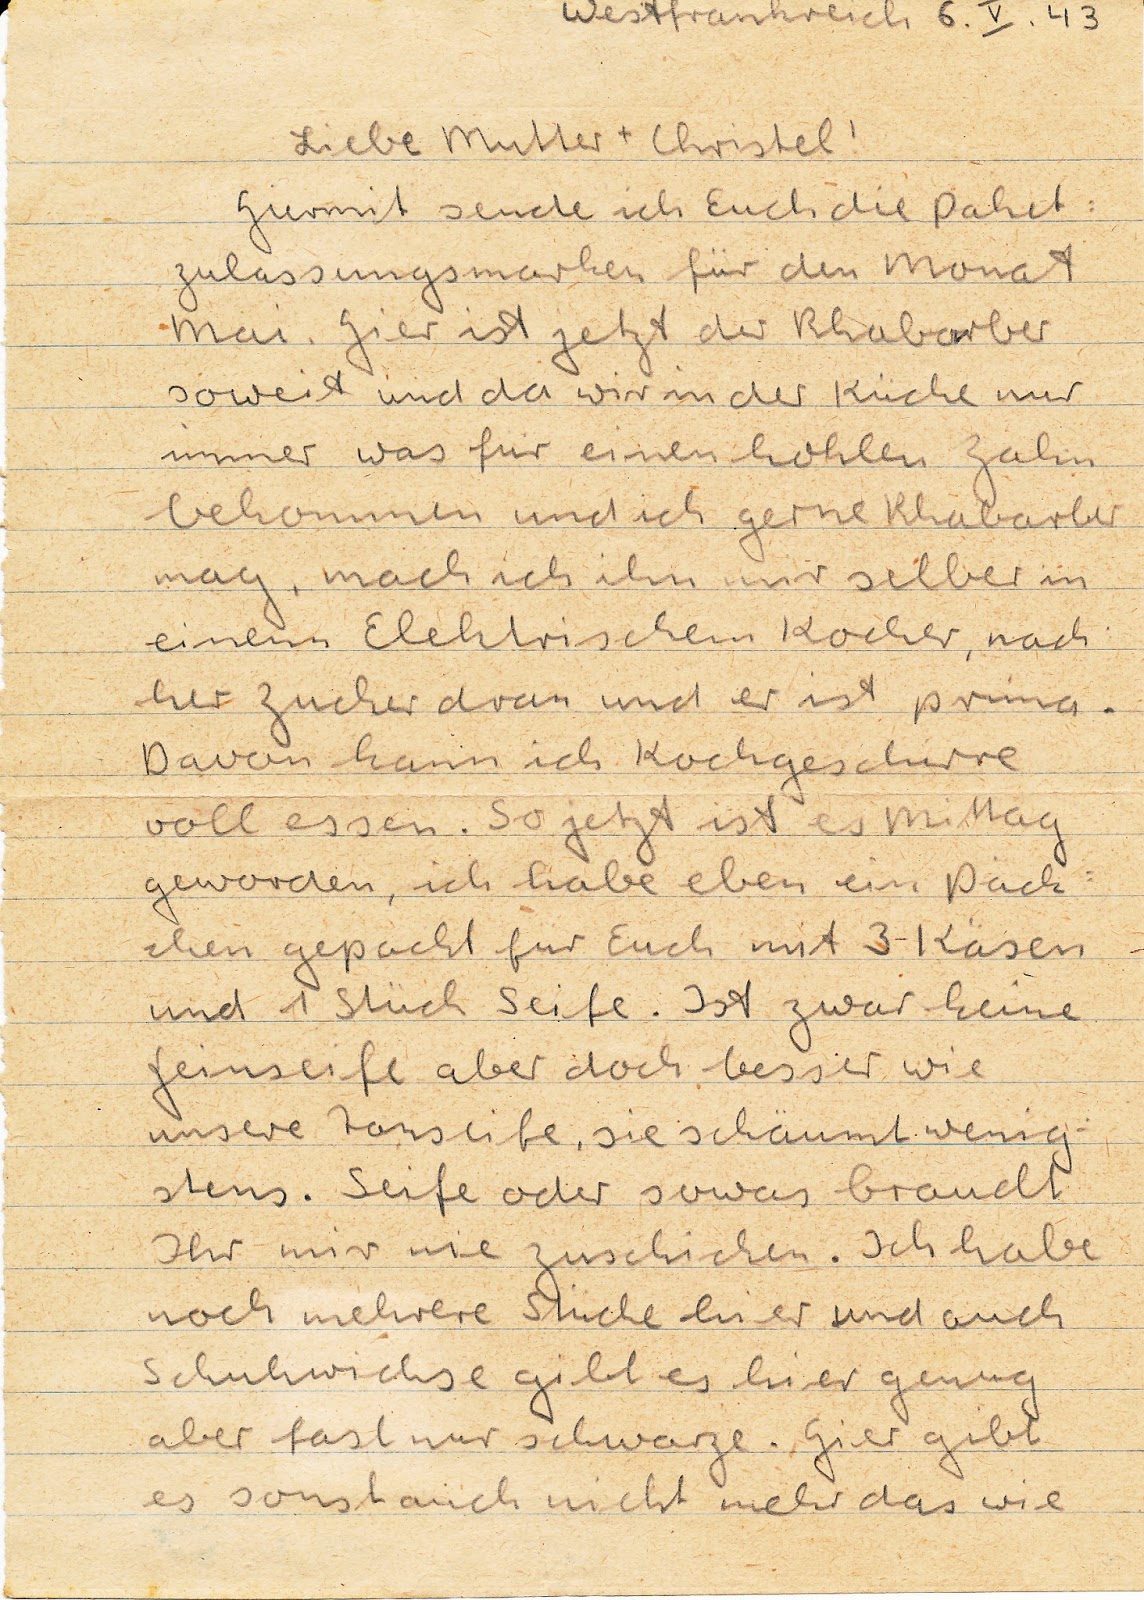 Westfrankreich 6. V. 43
Liebe Mutter + Christel!
Hiermit sende ich Euch die Paket:
zulassungsmarken für den Monat
Mai. Hier ist jetzt der Rhabarber
soweit und da wir in der Küche nur
immer was für einen hohlen Zahn
bekommen und ich gerne Rhabarber
mag, mach ich ihn mir selber in
einem Elektrischem Kocher, nach
her Zucker dran und er ist prima.
Davon kann ich Kochgeschirre
voll essen. So jetzt ist es Mittag
geworden, ich habe eben ein Päck:
chen gepackt für Euch mit 3 Käsen
und 1 Stück Seife. Ist zwar keine
Feinseife aber doch besser wie
unsere Tonseife, sie schäumt wenig:
stens. Seife oder sowas braucht
Ihr mir nie zuschicken. Ich habe
noch mehrere Stücke hier und auch
Schuhwichse gibt es hier genug
aber fast nur schwarze. Hier gibt
es sonst auch nicht mehr das wie